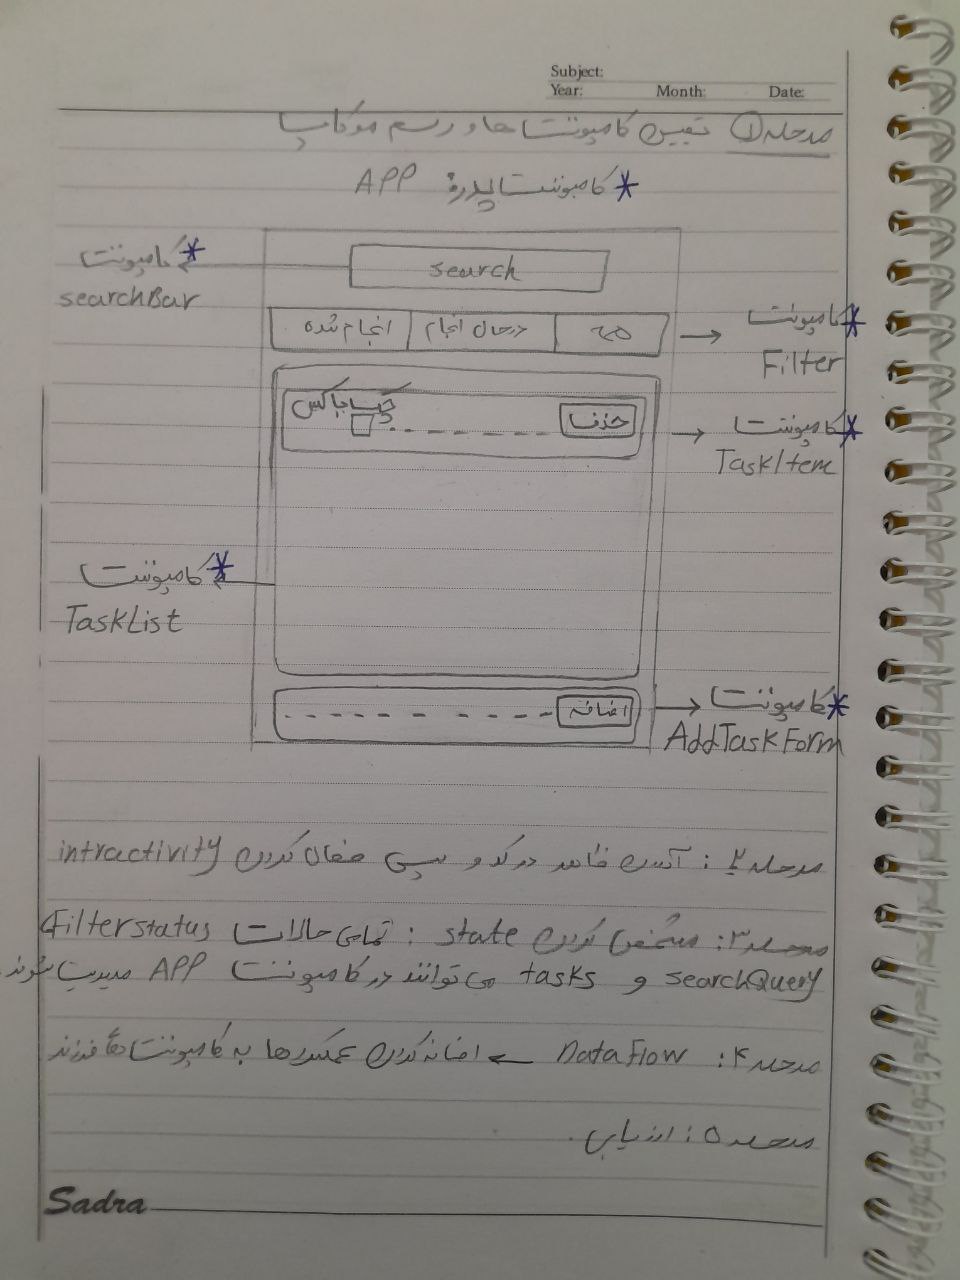 Subject:
Year: Month: Date:
مرحله ① تعیین کامپوننت ها و رسم موکاپ
* کامپوننت پدر: APP
* کامپوننت
searchBar
search
همه درحال انجام انجام شده
* کامپوننت
Filter
چک باکس
حذف
* کامپوننت
TaskItem
* کامپوننت
TaskList
اضافه
* کامپوننت
AddTaskForm
مرحله ۲: آنس ظاهر در کد و سپس فعال کردن intractivity
مرحله ۳: مشخص کردن state : تمامی حالات Filterstatus
searchQuery و tasks می توانند در کامپوننت APP مدیریت شوند.
مرحله ۴: Data Flow ← اضافه کردن عملکردها به کامپوننت های فرزند
مرحله ۵: ارزیابی.
Sadra